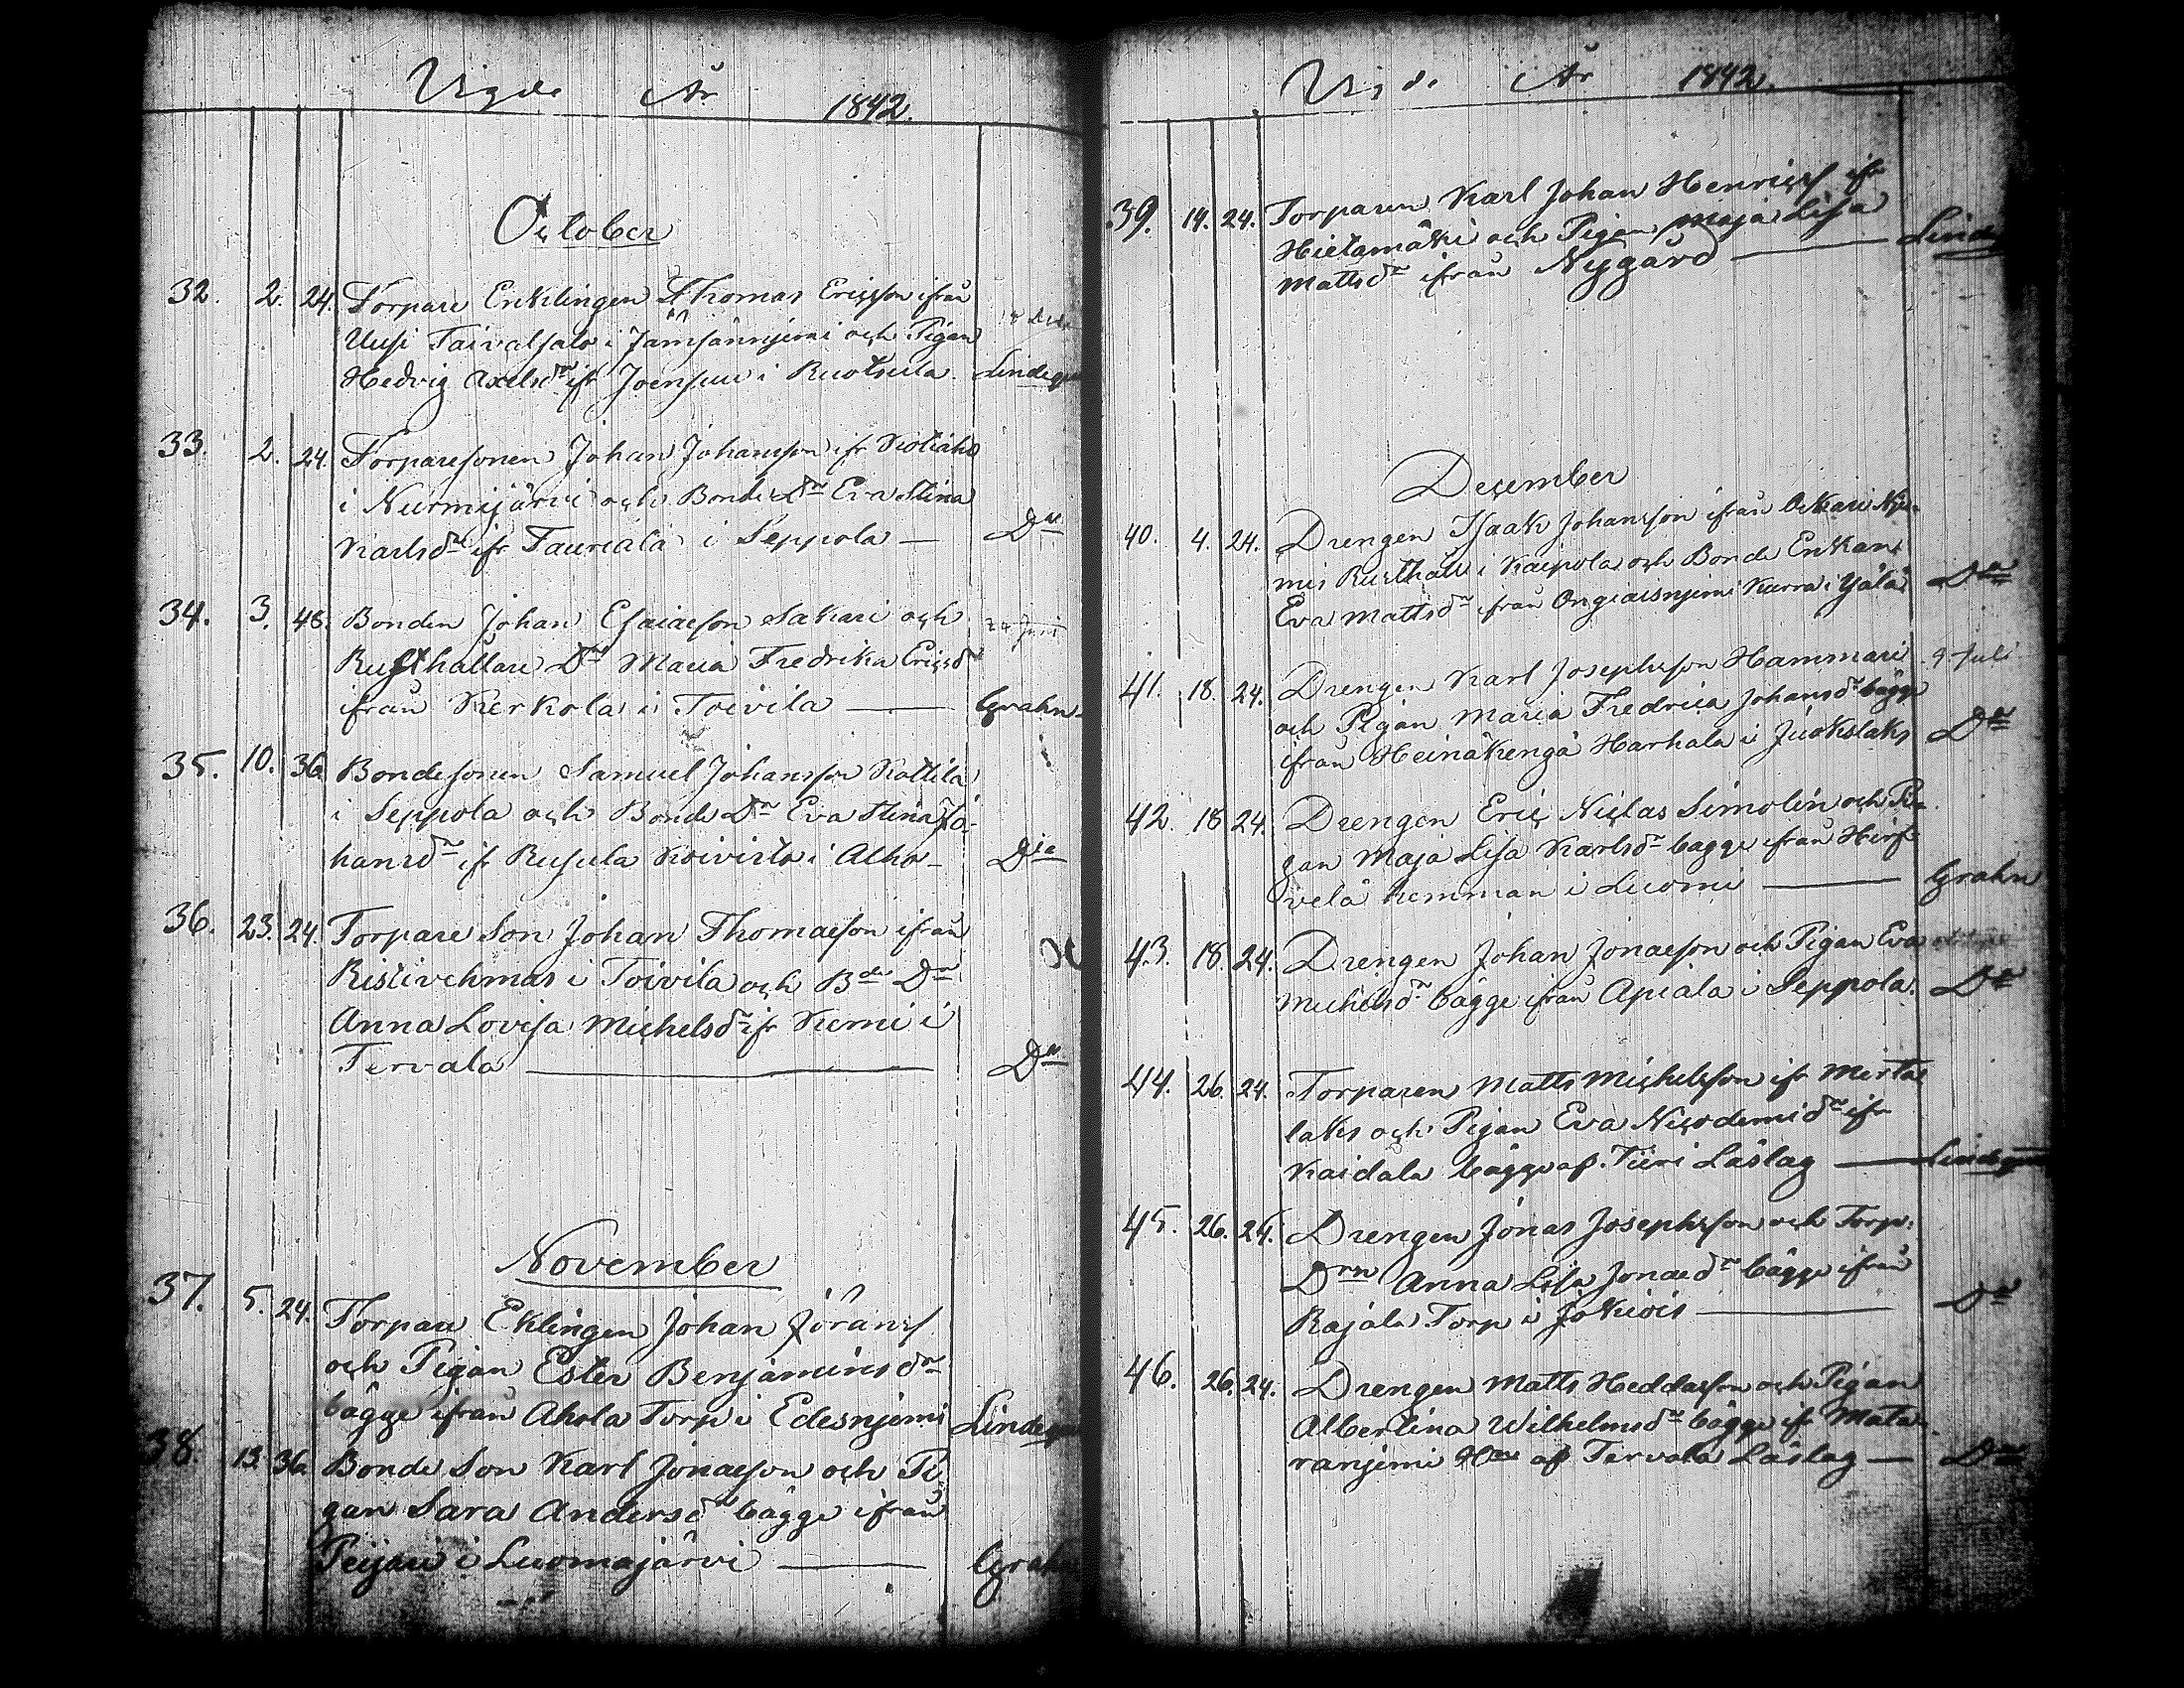 Vigde År 1842.
October
32. 2. 24. Torpare Enklingen Thomas Ericsson ifrån
Uusi Taivalsalo i Jämsänniemi och Pigan
Hedvig Axelsdr ifr Joensuu i Ruotsula Lindeq
33. 2. 24. Torparesonen Johan Johansson ifr Kotiaho
i Nurmijärvi och Bonde Dn Eva Stina
Karlsdr ifr Tauriala i Seppola — Do
34. 3. 48. Bonden Johan Esaiasson Sakari och 24 Juni
Rusthållare Dr Maria Fredrika Ericsdr
ifrån Kerkola i Toivila — Grahn
35. 10. 36. Bondesonen Samuel Johansson Kottila
i Seppola och Bonde Dn Eva Stina Jo-
hansdr ifr Rusula Koivisto i Alho — Do
36. 23. 24. Torpare Son Johan Thomasson ifrån
Ristivehmas i Toivila och Bde Dn
Anna Lovisa Michelsdr ifr Kemi i
Tervala — Do
November
37. 5. 24. Torpare Eklingen Johan Jöranss
och Pigan Ester Benjaminsdr
bägge ifrån Ahola Torp i Edesnjemi Lindeq
38. 13. 36. Bonde Son Karl Jonasson och Pi-
gan Sara Andersdr bägge ifrån
Peijari i Luomajärvi — Grah
Vigde År 1842.
39. 14. 24. Torparen Karl Johan Henricss ifr
Hietamäki och Pigan Maja Lisa
Mattsdr ifrån Nygård — Linde
December
40. 4. 24. Drengen Isaak Johansson ifrån Oskari Nje-
mis Rusthåll i Kaipola och Bonde Enkan
Eva Mattsdr ifrån Ongiaisnjemi Karra i Yälä Do
41. 18. 24. Drengen Karl Josephsson Hammari 9 Juli
och Pigan Maria Fredrica Johansdr bägge
ifrån Heinäkengä Harhala i Juokslaks Do
42. 18. 24. Drengen Eric Niclas Simolin och Pi-
gan Maja Lisa Karlsdr bägge ifrån Hirs-
velä hemman i Luomi — Grahn
43. 18. 24. Drengen Johan Jonasson och Pigan Eva
Michelsdr bägge ifrån Apiala i Seppola. Do
44. 26. 24. Torparen Matts Michelsson ifr Merta
laks och Pigan Eva Nicodemidr ifr
Kaidala bägge af Tiiri Läslag — Lindeq
45. 26. 24. Drengen Jonas Josephsson och Torp.
Drn Anna Lisa Jonaedr bägge ifrån
Rajala Torp i Jokiois — Do
46. 26. 24. Drengen Matts Heddasson och Pigan
Albertina Wilhelmsdr bägge ifr Mata-
ranjemi Hn af Tervala Läslag — Do